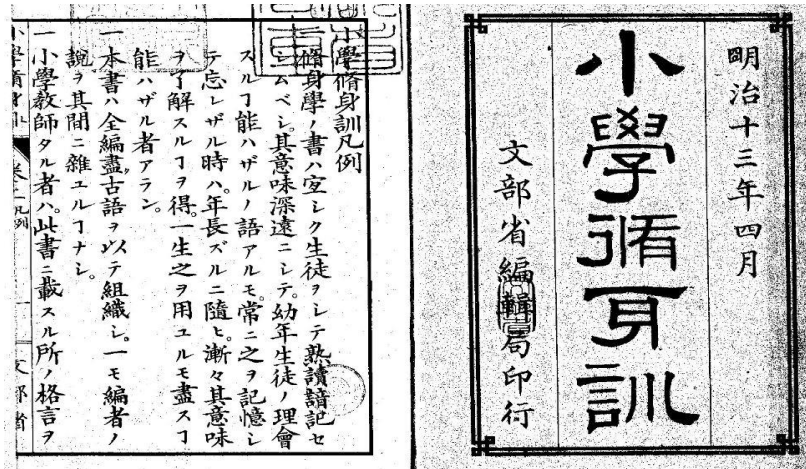 明治十三年四月
小學脩身訓
文部省編輯局印行
小學脩身訓凡例
一脩身學ノ書ハ宜シク生徒ヲシテ熟讀諳記セ
シムベシ。其意味深遠ニシテ。幼年生徒ノ理會
スルヿ能ハザルノ語アルモ。常ニ之ヲ記憶シ
テ忘レザル時ハ。年長ズルニ隨ヒ。漸々其意味
ヲ了解スルヿヲ得。一生之ヲ用ユルモ盡スヿ
能ハザル者アラン。
一本書ハ全編盡古語ヲ以テ組織シ。一モ編者ノ
說ヲ其間ニ雜ユルヿナシ。
一小學教師タル者ハ。此書ニ載スル所ノ格言ヲ
小學脩身訓 卷之 凡例 文部省